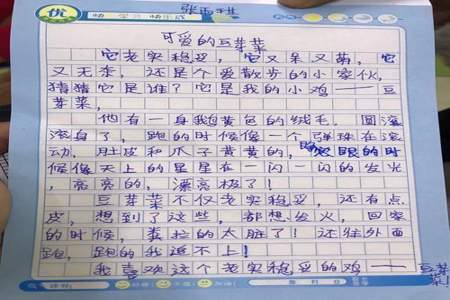 优
张雨桂
可爱的豆芽菜
它老实稳妥，它又呆又萌，它
又无奈，还是个爱散步的小家伙，
猜猜它是谁？它是我的小鸡——豆
芽菜，
他有一身黄色的绒毛，圆滚
滚身了，跑的时候像一个弹珠在滚
动，肚皮和爪子黄黄的，眼的时
候像天上的星星在一闪一闪的发光
，亮亮的，漂亮极了！
豆芽菜不仅老实稳妥，还有点
皮，想到了这些，都想发火，回家
的时候，粪拉的太脏了！还往外面
跑，跑的我追不上！
我喜欢这个老实稳妥的鸡——豆芽
菜！